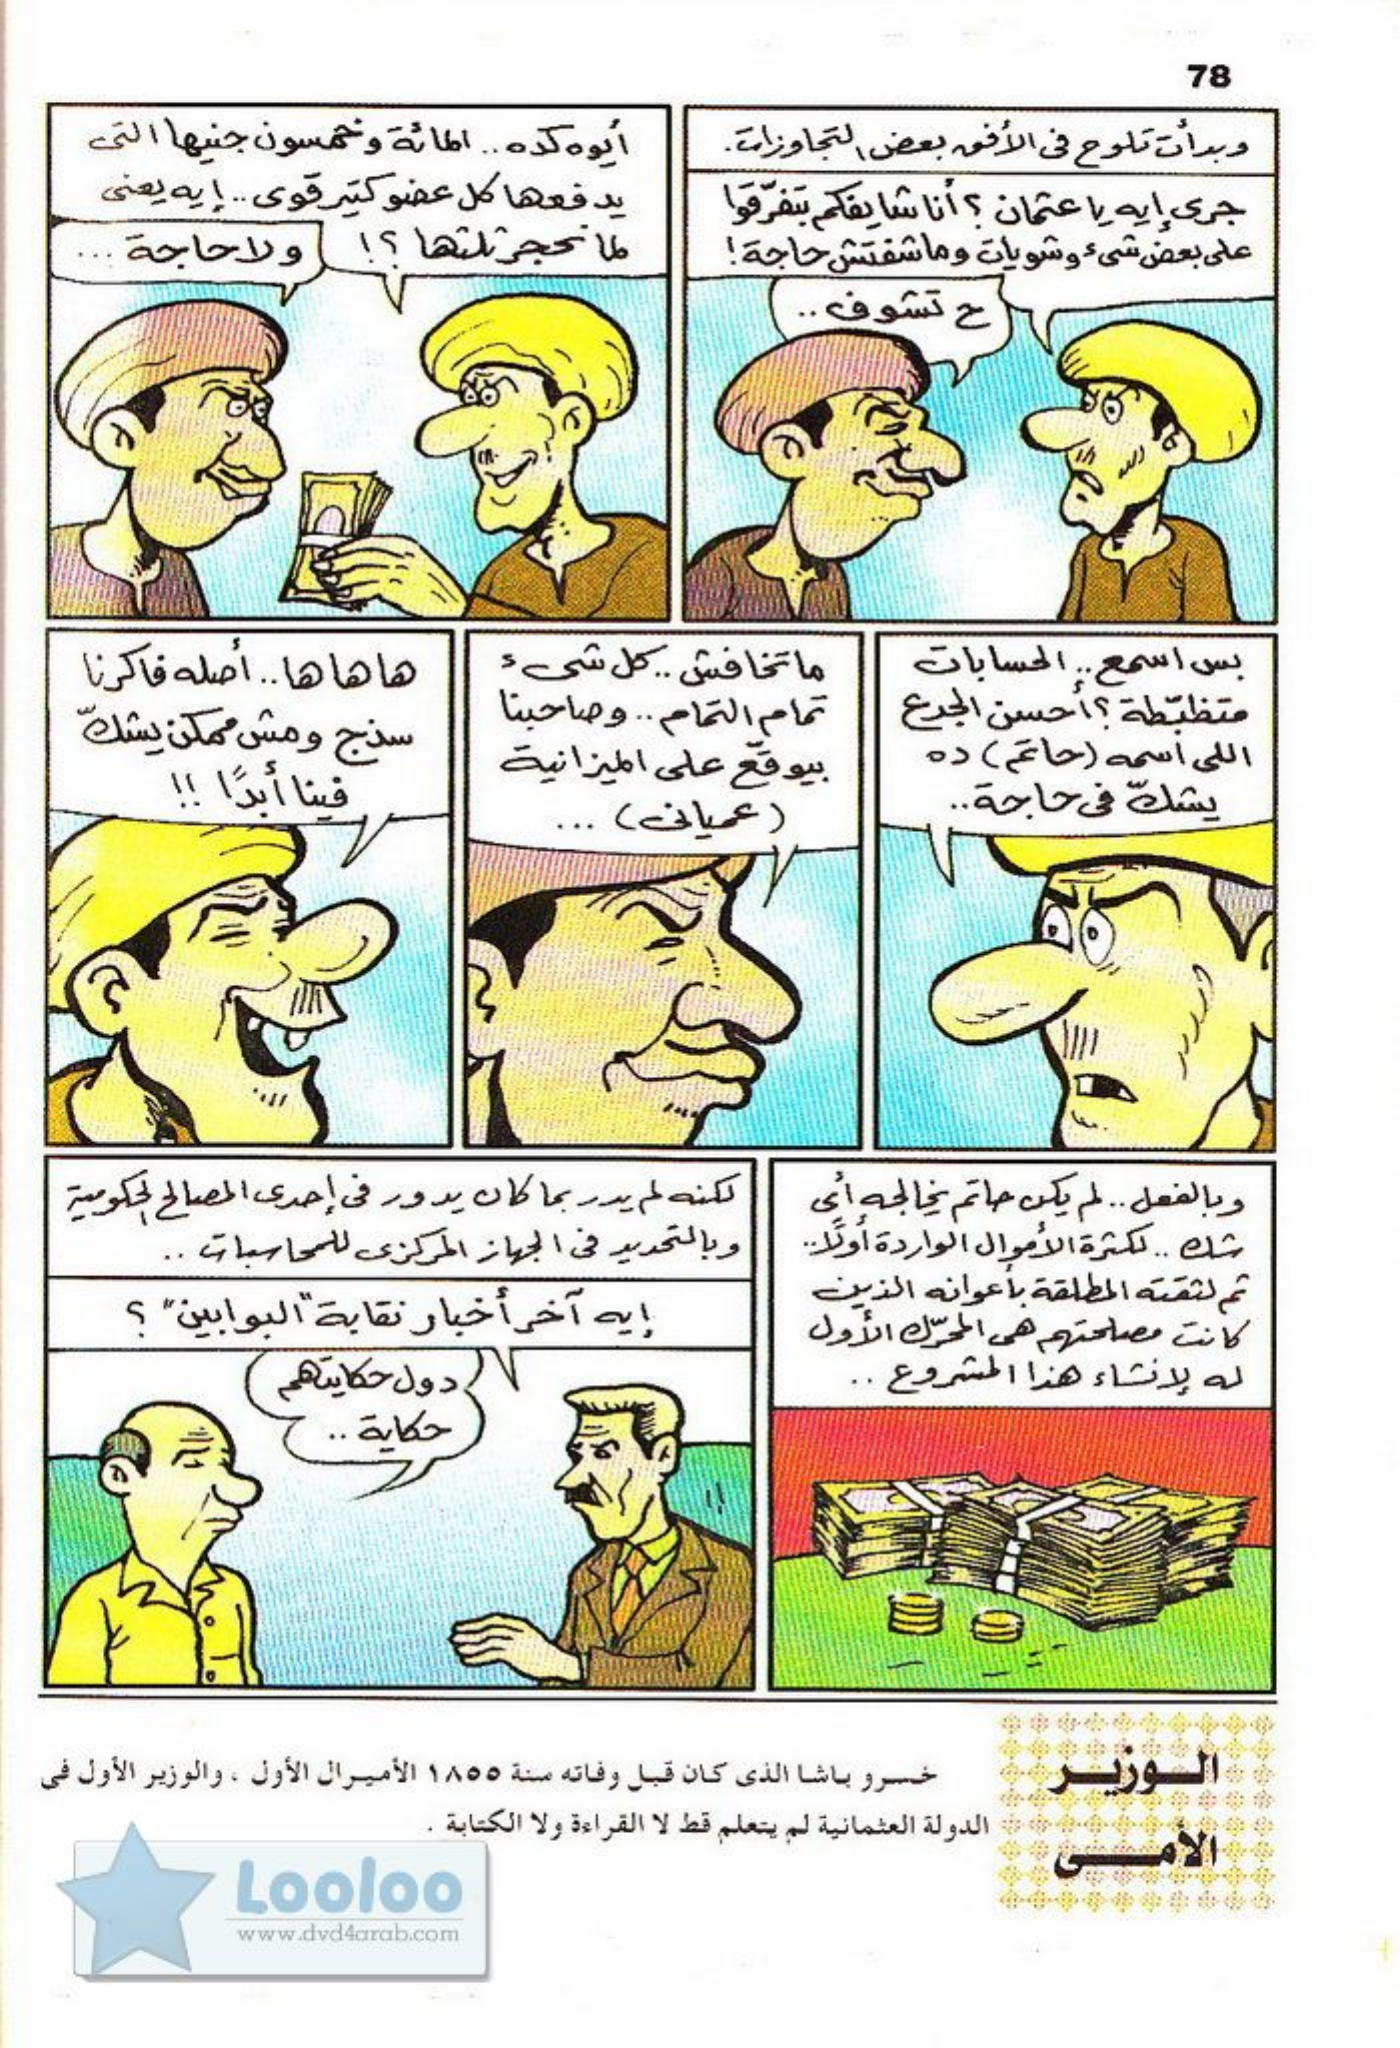 78
وبدأت تلوح فى الأفق بعض التجاوزات.
جرى إيه يا عثمان ؟ أنا شايفكم بتفرّقوا
على بعض شىء وشويات وماشفتش حاجة !
ح تشوف ..
أيوه كده .. المائة وخمسون جنيها التى
يدفعها كل عضو كتير قوى .. إيه يعنى
لما نحجز ثلثها ؟!
ولا حاجة ...
بس اسمع .. الحسابات
متظبّطة ؟ أحسن الجدع
اللى اسمه (حاتم) ده
يشكّ فى حاجة ..
ماتخافش .. كل شىء
تمام التمام .. وصاحبنا
بيوقّع على الميزانية
(عميانى) ...
ها ها ها .. أصله فاكرنا
سذج ومش ممكن يشكّ
فينا أبدًا !!
وبالفعل .. لم يكن حاتم يخالجه أى
شك .. لكثرة الأموال الواردة أولًا ..
ثم لثقته المطلقة بأعوانه الذين
كانت مصلحتهم هى المحرّك الأول
له لإنشاء هذا المشروع ..
لكنه لم يدر بما كان يدور فى إحدى المصالح الحكومية
وبالتحديد فى الجهاز المركزى للمحاسبات ..
إيه آخر أخبار نقابة "البوابين" ؟
دول حكايتهم
حكاية ..
الـوزيـر
الأمــى
خسرو باشا الذى كان قبل وفاته سنة ١٨٥٥ الأميرال الأول ، والوزير الأول فى
الدولة العثمانية لم يتعلم قط لا القراءة ولا الكتابة .
Looloo
www.dvd4arab.com